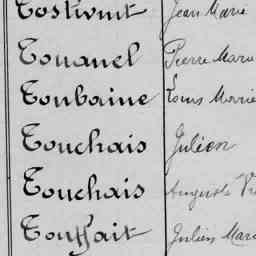 Tostivint Jean Marie
Touanel Pierre Marie
Toubaine Louis Marie
Touchais Julien
Touchais Auguste
Touffait Julien Mari